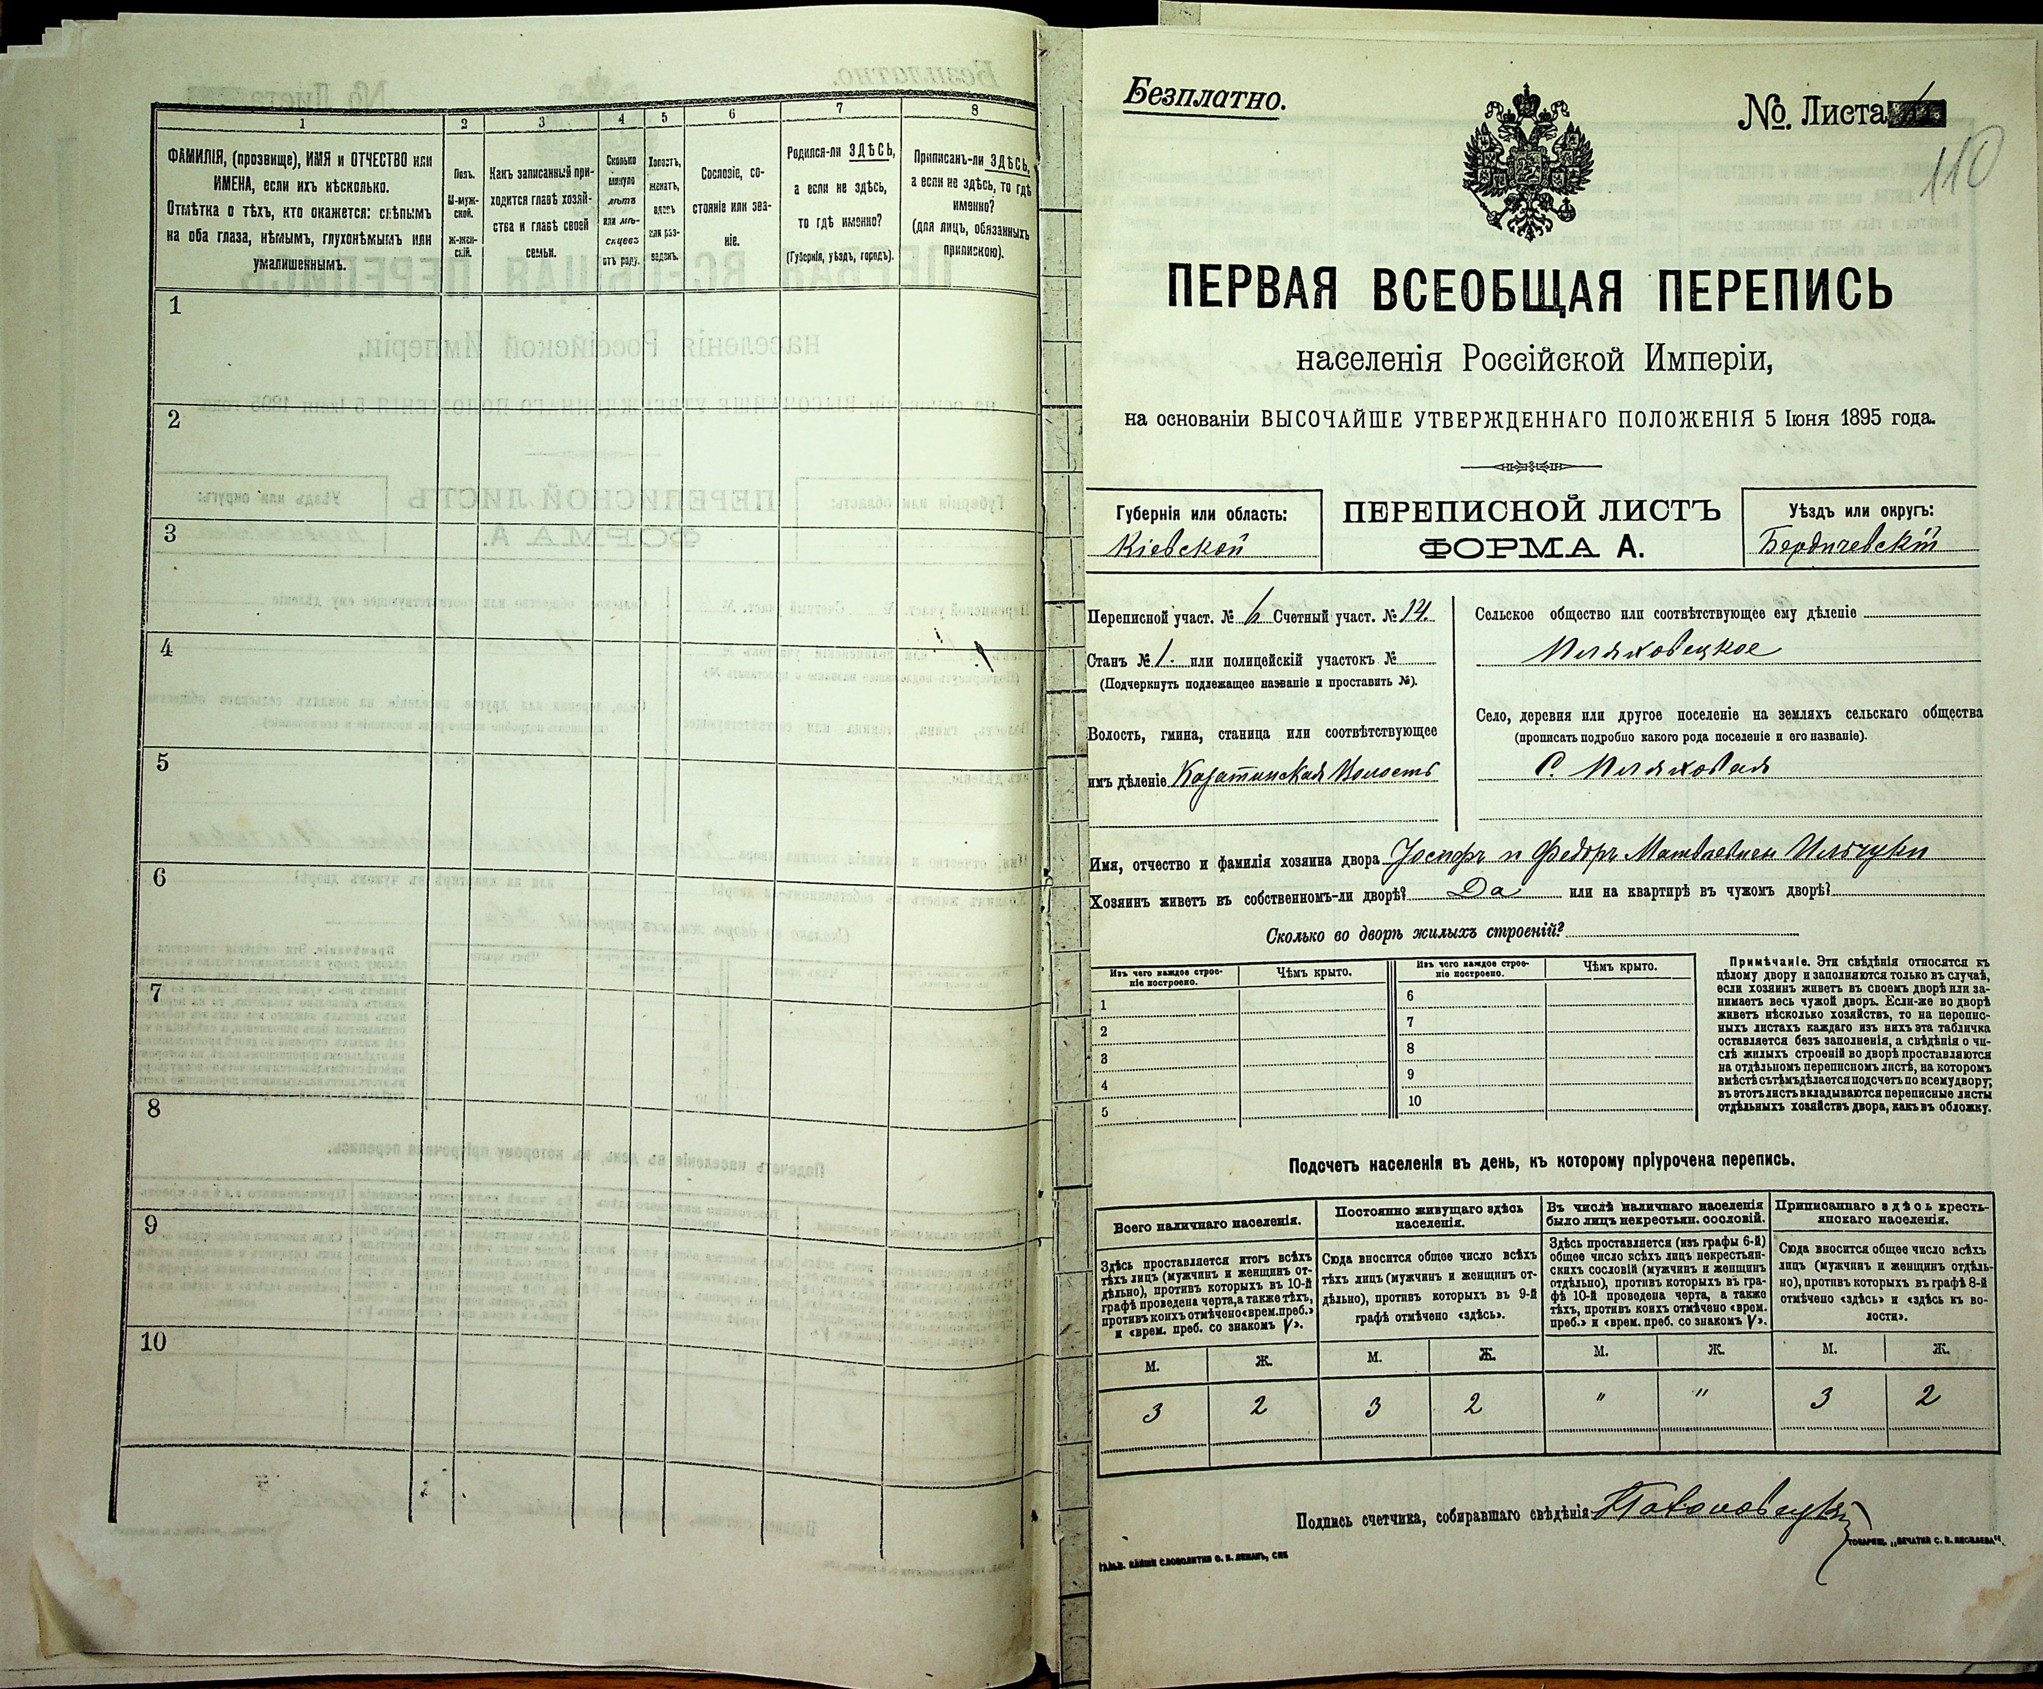 1
2
3
4
5
6
7
8
ФАМИЛІЯ, (прозвище), ИМЯ и ОТЧЕСТВО или
ИМЕНА, если ихъ нѣсколько.
Отмѣтка о тѣхъ, кто окажется: слѣпымъ
на оба глаза, нѣмымъ, глухонѣмымъ или
умалишеннымъ.
Полъ.
М-муж-
ской.
Ж-жен-
скій.
Какъ записанный при-
ходится главѣ хозяй-
ства и главѣ своей
семьи.
Сколько
минуло
лѣтъ
или мѣ-
сяцевъ
отъ роду.
Холостъ,
женатъ,
вдовъ
или раз-
веденъ.
Сословіе, со-
стояніе или зва-
ніе.
Родился-ли ЗДѢСЬ,
а если не здѣсь,
то гдѣ именно?
(Губернія, уѣздъ, городъ).
Приписанъ-ли ЗДѢСЬ,
а если не здѣсь, то гдѣ
именно?
(для лицъ, обязанныхъ
припискою).
1
2
3
4
5
6
7
8
9
10
Безплатно.
№. Листа
110
ПЕРВАЯ ВСЕОБЩАЯ ПЕРЕПИСЬ
населенія Россійской Имперіи,
на основаніи ВЫСОЧАЙШЕ УТВЕРЖДЕННАГО ПОЛОЖЕНІЯ 5 Іюня 1895 года.
Губернія или область:
Кіевской
ПЕРЕПИСНОЙ ЛИСТЪ
ФОРМА А.
Уѣздъ или округъ:
Бердичевскій
Переписной участ. № 6 Счетный участ. № 14.
Станъ № 1. или полицейскій участокъ №
(Подчеркнуть подлежащее названіе и проставить №).
Волость, гмина, станица или соотвѣтствующее
имъ дѣленіе Козатинская Волость
Сельское общество или соотвѣтствующее ему дѣленіе
Пляховецкое
Село, деревня или другое поселеніе на земляхъ сельскаго общества
(прописать подробно какого рода поселеніе и его названіе).
С. Пляховая
Имя, отчество и фамилія хозяина двора Іосифъ и Федоръ Матвѣевичи Ильчуки
Хозяинъ живетъ въ собственномъ-ли дворѣ? Да или на квартирѣ въ чужомъ дворѣ?
Сколько во дворѣ жилыхъ строеній?
Изъ чего каждое строе-
ніе построено.
Чѣмъ крыто.
Изъ чего каждое строе-
ніе построено.
Чѣмъ крыто.
1
2
3
4
5
6
7
8
9
10
Примѣчаніе. Эти свѣдѣнія относятся къ
цѣлому двору и заполняются только въ случаѣ,
если хозяинъ живетъ въ своемъ дворѣ или за-
нимаетъ весь чужой дворъ. Если-же во дворѣ
живетъ нѣсколько хозяйствъ, то на перепис-
ныхъ листахъ каждаго изъ нихъ эта табличка
оставляется безъ заполненія, а свѣдѣнія о чи-
слѣ жилыхъ строеній во дворѣ проставляются
на отдѣльномъ переписномъ листѣ, на которомъ
вмѣстѣ съ тѣмъ дѣлается подсчетъ по всему двору;
въ этотъ листъ вкладываются переписные листы
отдѣльныхъ хозяйствъ двора, какъ въ обложку.
Подсчетъ населенія въ день, къ которому пріурочена перепись.
Всего наличнаго населенія.
Постоянно живущаго здѣсь
населенія.
Въ числѣ наличнаго населенія
было лицъ некрестьян. сословій.
Приписаннаго здѣсь кресть-
янскаго населенія.
Здѣсь проставляется итогъ всѣхъ
тѣхъ лицъ (мужчинъ и женщинъ от-
дѣльно), противъ которыхъ въ 10-й
графѣ проведена черта, а также тѣхъ,
противъ коихъ отмѣчено «врем. преб.»
и «врем. преб. со знакомъ V».
Сюда вносится общее число всѣхъ
тѣхъ лицъ (мужчинъ и женщинъ от-
дѣльно), противъ которыхъ въ 9-й
графѣ отмѣчено «здѣсь».
Здѣсь проставляется (изъ графы 6-й)
общее число всѣхъ лицъ некрестьян-
скихъ сословій (мужчинъ и женщинъ
отдѣльно), противъ которыхъ въ гра-
фѣ 10-й проведена черта, а также
тѣхъ, противъ коихъ отмѣчено «врем.
преб.» и «врем. преб. со знакомъ V».
Сюда вносится общее число всѣхъ
лицъ (мужчинъ и женщинъ отдѣль-
но), противъ которыхъ въ графѣ 8-й
отмѣчено «здѣсь» и «здѣсь къ во-
лости».
М. Ж. М. Ж. М. Ж. М. Ж.
3 2 3 2 " " 3 2
Подпись счетчика, собиравшаго свѣдѣнія
ТОВАРИЩ. „ПЕЧАТНЯ С. П. ЯКОВЛЕВА“.
СЛОВОЛИТНЯ О. И. ЛЕМАНЪ, СПБ